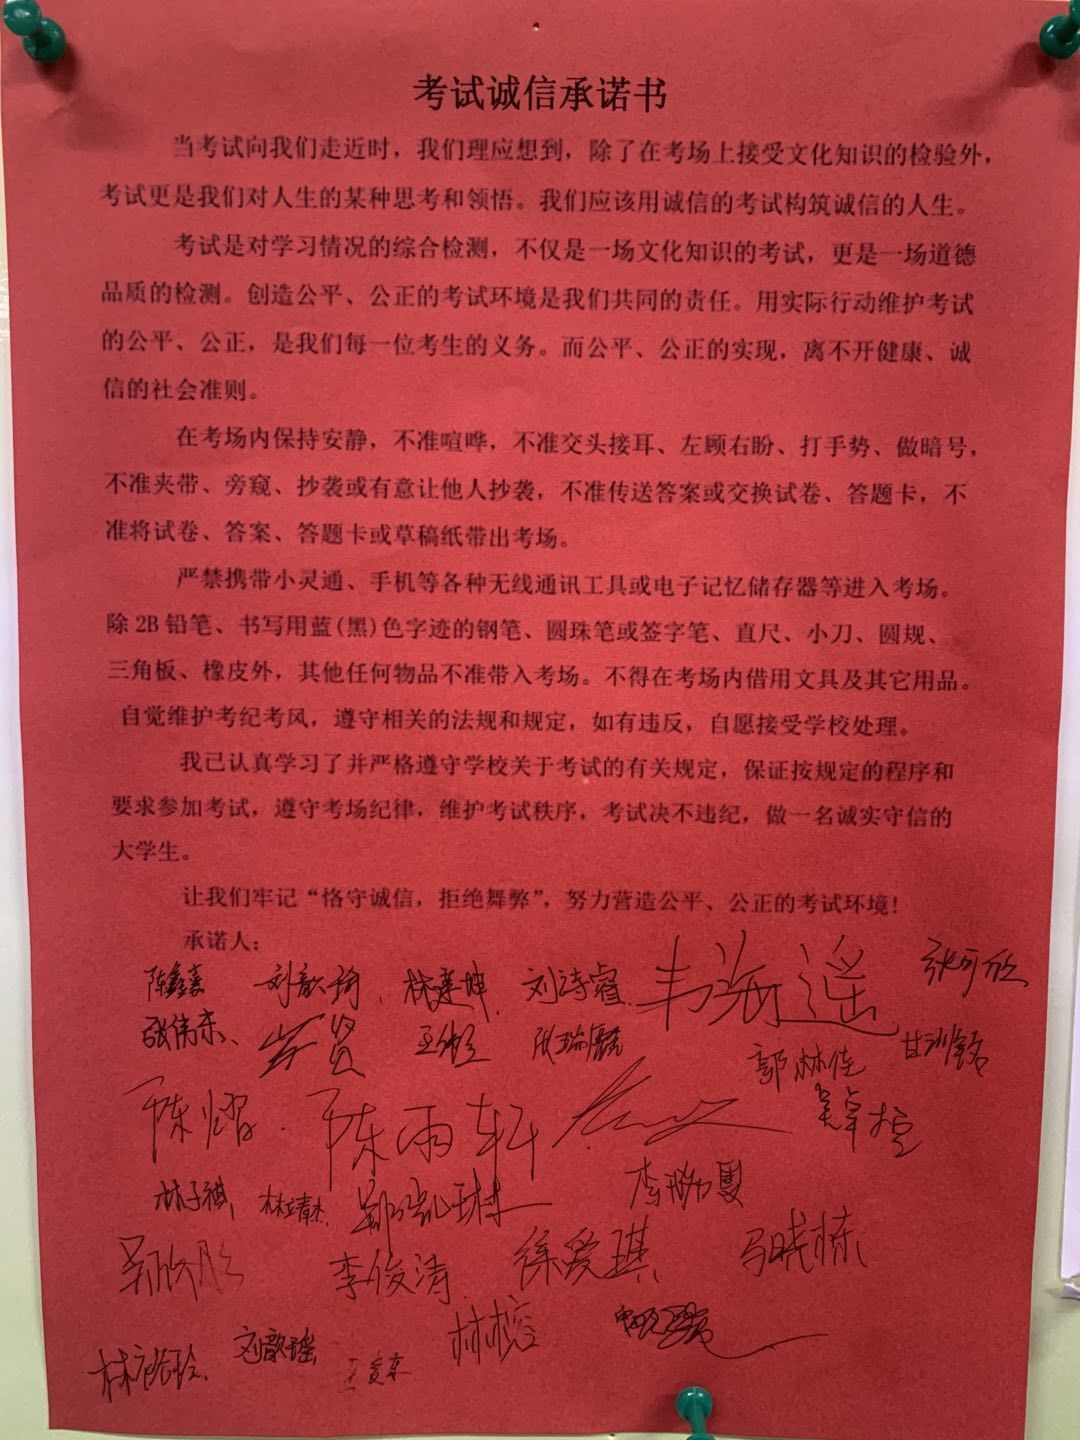 考试诚信承诺书
当考试向我们走近时，我们理应想到，除了在考场上接受文化知识的检验外，
考试更是我们对人生的某种思考和领悟。我们应该用诚信的考试构筑诚信的人生。
考试是对学习情况的综合检测，不仅是一场文化知识的考试，更是一场道德
品质的检测。创造公平、公正的考试环境是我们共同的责任。用实际行动维护考试
的公平、公正，是我们每一位考生的义务。而公平、公正的实现，离不开健康、诚
信的社会准则。
在考场内保持安静，不准喧哗，不准交头接耳、左顾右盼、打手势、做暗号，
不准夹带、旁窥、抄袭或有意让他人抄袭，不准传送答案或交换试卷、答题卡，不
准将试卷、答案、答题卡或草稿纸带出考场。
严禁携带小灵通、手机等各种无线通讯工具或电子记忆储存器等进入考场。
除2B铅笔、书写用蓝(黑)色字迹的钢笔、圆珠笔或签字笔、直尺、小刀、圆规、
三角板、橡皮外，其他任何物品不准带入考场。不得在考场内借用文具及其它用品。
自觉维护考纪考风，遵守相关的法规和规定，如有违反，自愿接受学校处理。
我已认真学习了并严格遵守学校关于考试的有关规定，保证按规定的程序和
要求参加考试，遵守考场纪律，维护考试秩序，考试决不违纪，做一名诚实守信的
大学生。
让我们牢记“格守诚信，拒绝舞弊”，努力营造公平、公正的考试环境！
承诺人：
陈鑫嘉 刘歆琦 林建坤 刘诗睿 韦海遥 张可欣
张伟东、
郭林佳
陈熠 陈雨轩
林子祺 林靖杰
李俊清 徐爱琪 马晓栋
刘歆瑶 林榕